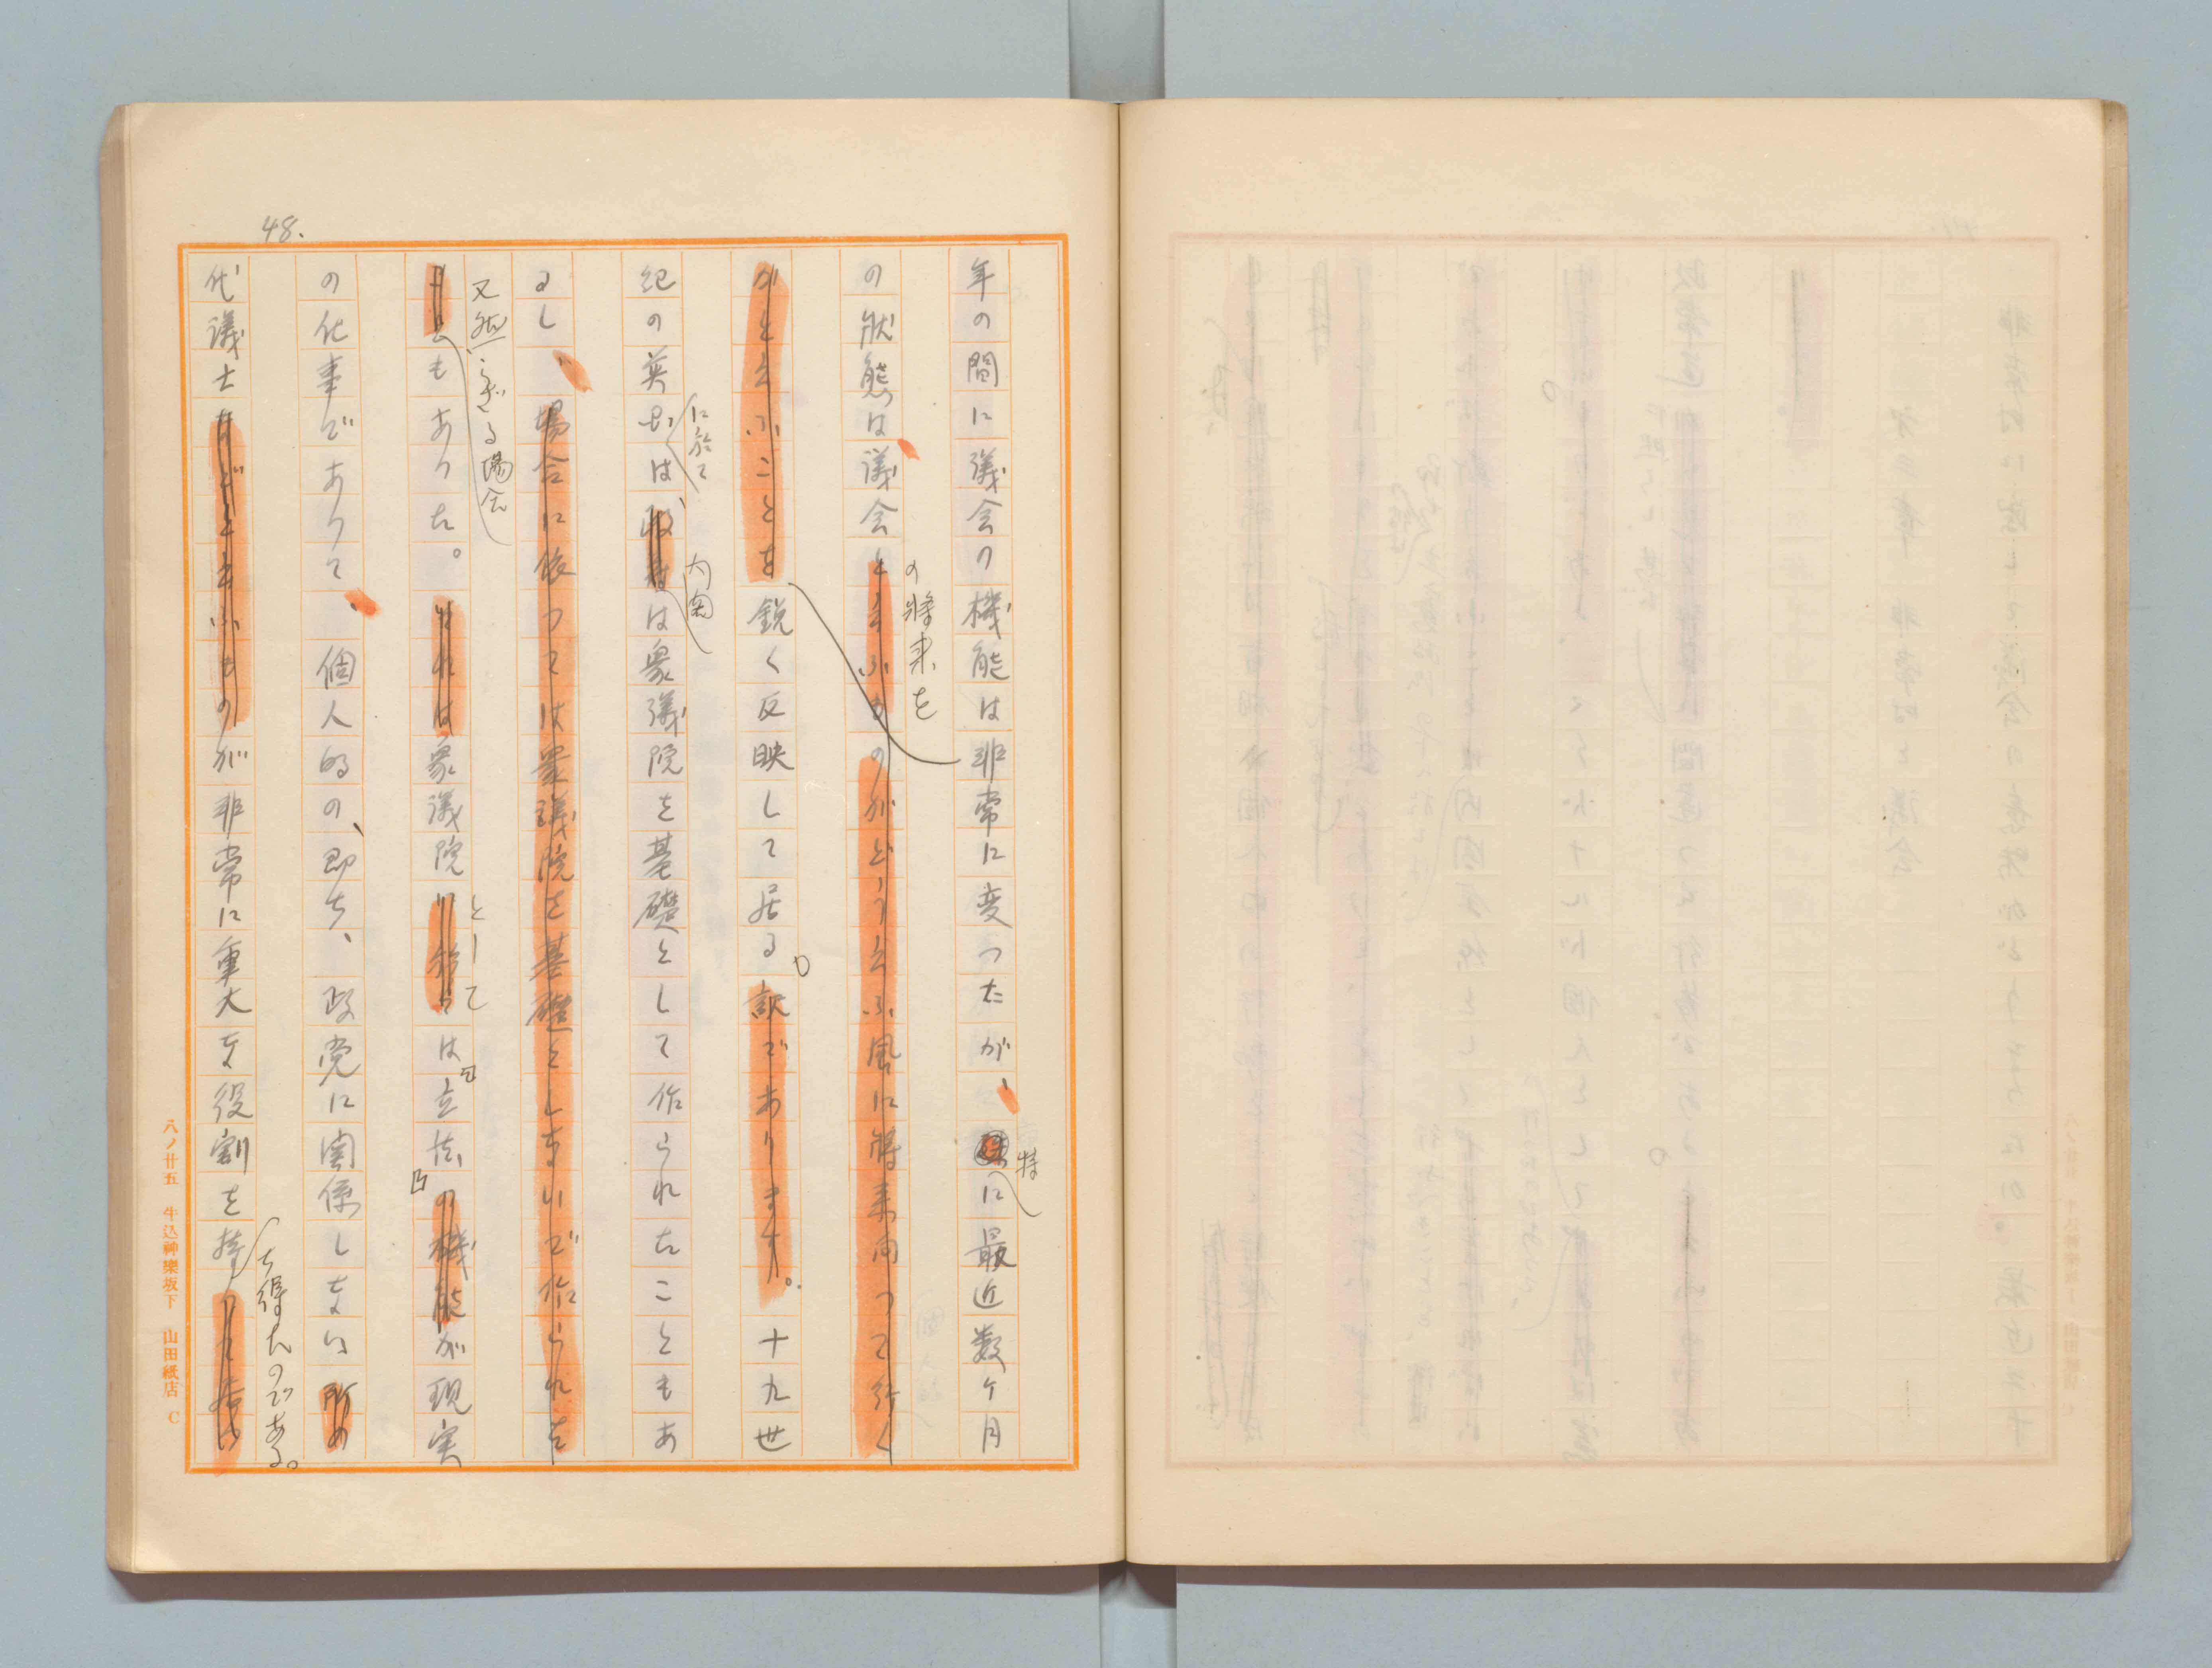 48.
年の間に議会の機能は非常に変つたが、特に最近数ケ月
の状態は議会と云ふものがどう云ふ風に将来向つて行く
の将来を
かと云ふことを鋭く反映して居る。訳であります。十九世
紀の英国は政府は衆議院を基礎として作られたこともあ
に於て
内閣
るし、場合に依つては衆議院を基礎としないで作られた
又然らざる場合
もあつた。それは衆議院に於ては立法の機能が現実
として
の仕事でありて、個人的の、即ち、政党に関係しない所の
代議士などと云ふものが非常に重大な役割を持つて居
ち得たのである。
八ノ廿五 牛込神樂坂下 山田紙店 C